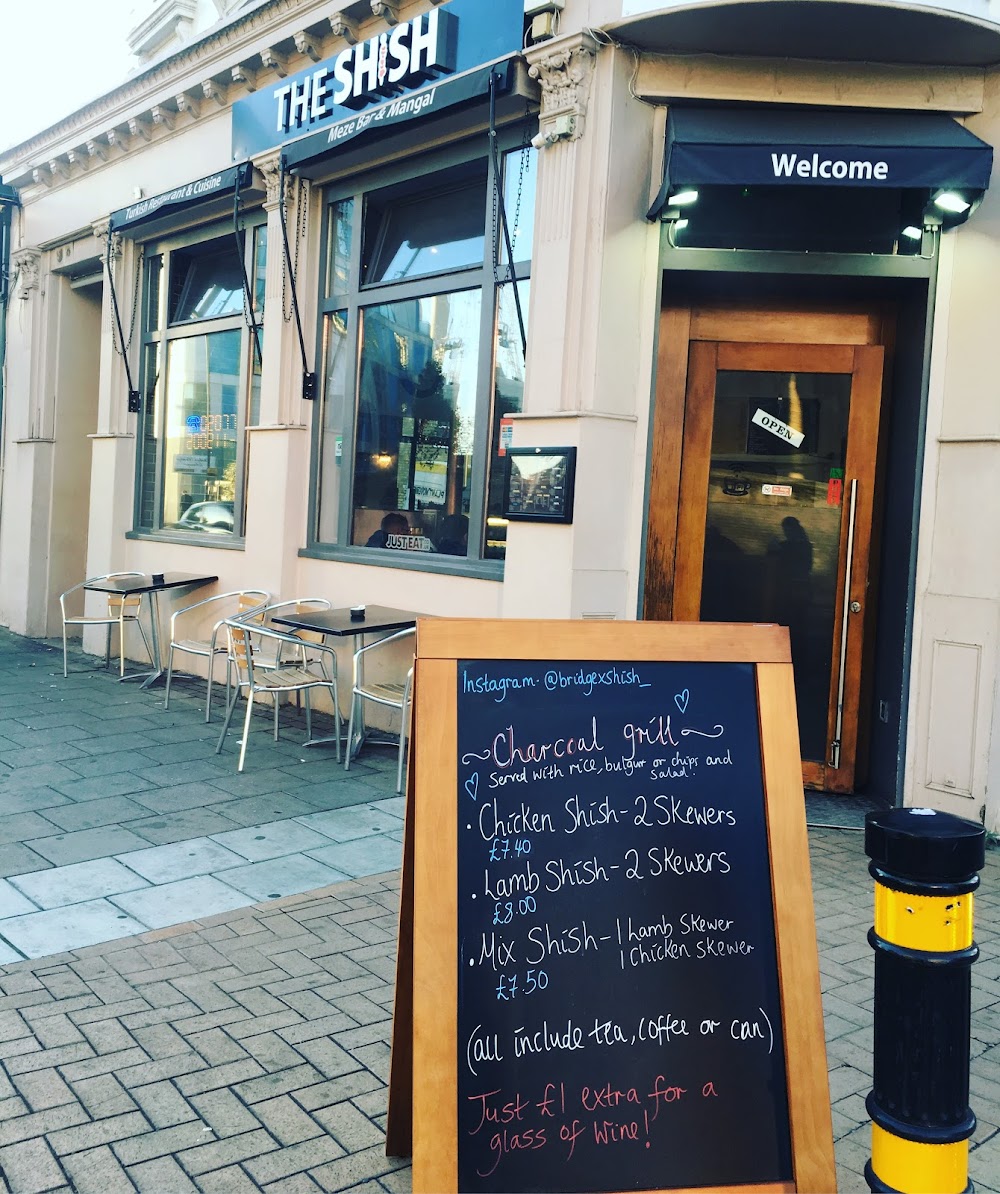 THE SHISH
Meze Bar & Mangal
Turkish Restaurant & Cuisine
Welcome
OPEN
JUST EAT
Instagram. @bridgexshish_
Charcoal grill
Served with rice, bulgur or chips and
salad.
• Chicken Shish - 2 Skewers
£7.40
• Lamb Shish - 2 Skewers
£8.00
• Mix Shish - 1 Lamb Skewer
1 Chicken Skewer
£7.50
(all include tea, coffee or can)
Just £1 extra for a
glass of wine!